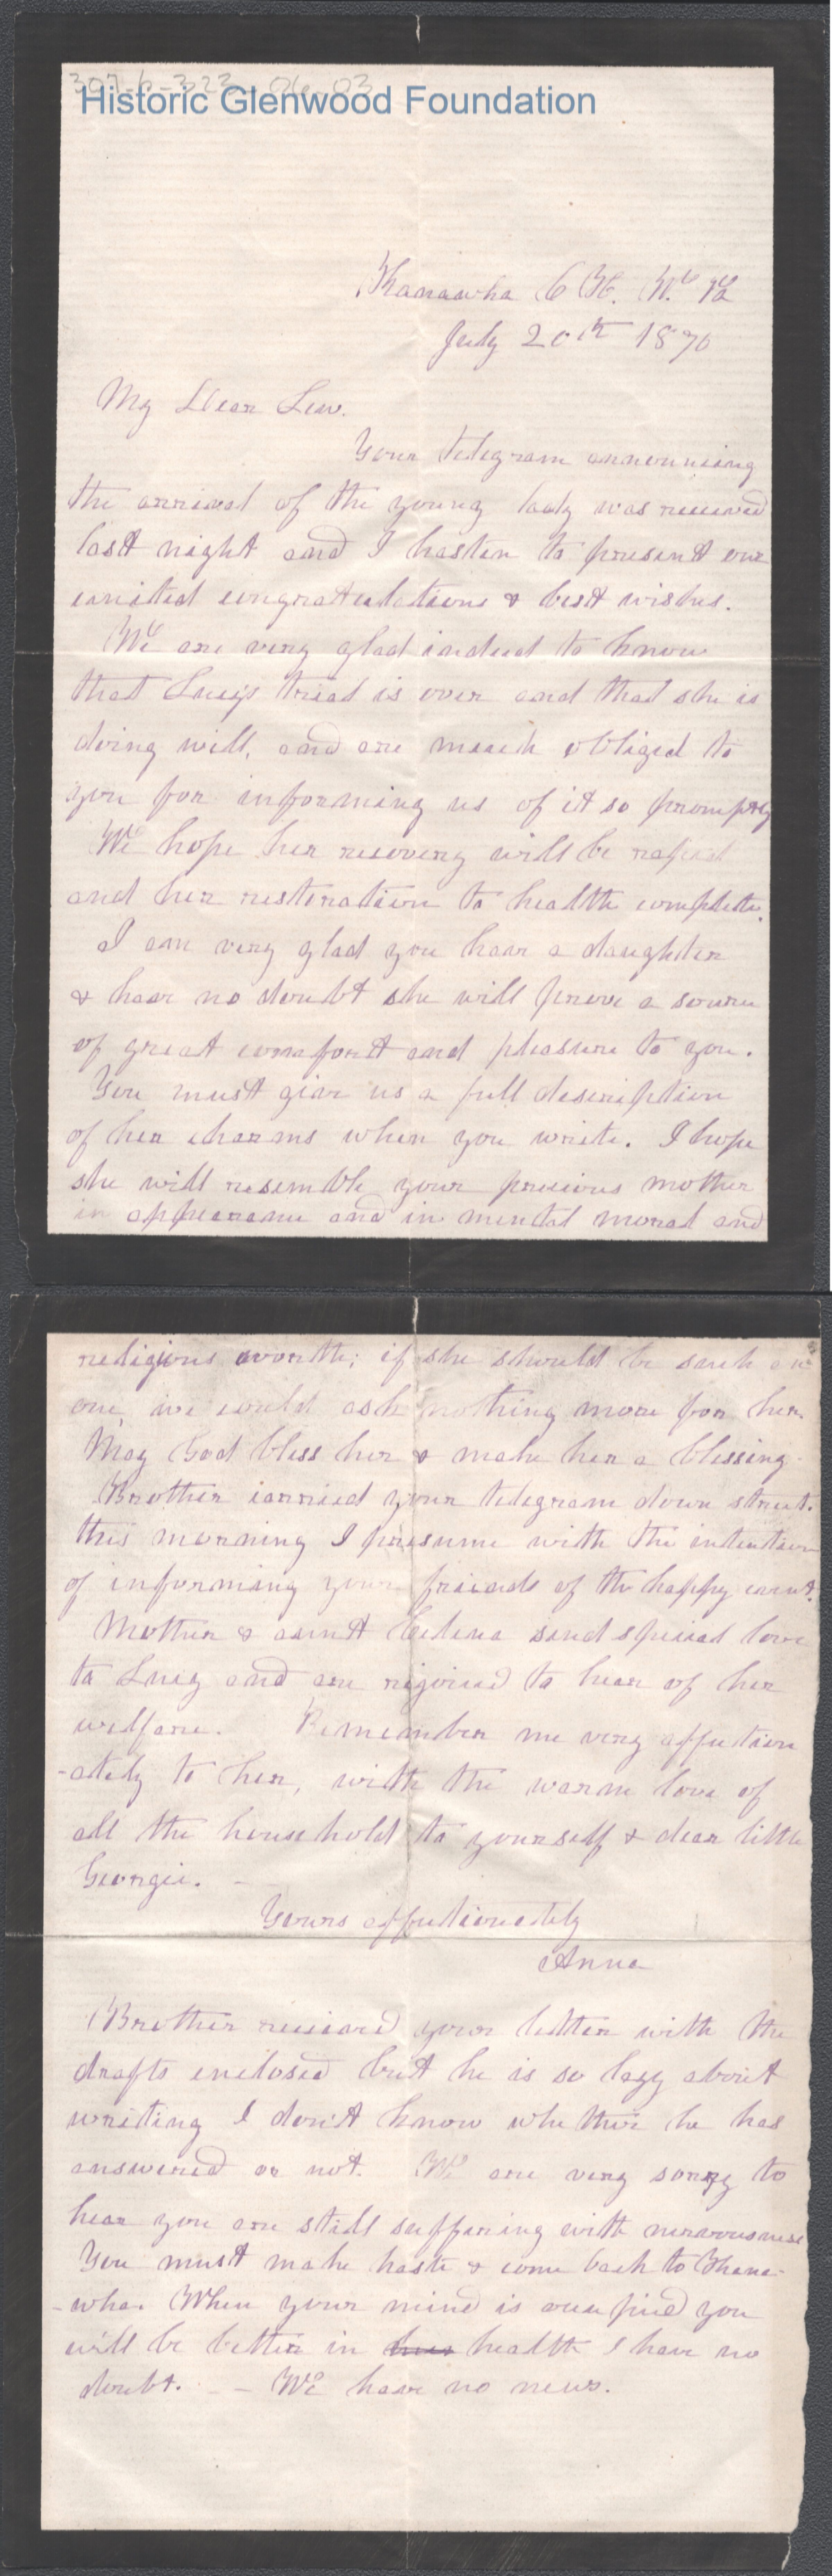 307-6-323-06-03
Historic Glenwood Foundation
Kanawha C. H. W. Va
July 20th 1870
My Dear Lew.
Your telegram announcing
the arrival of the young lady was received
last night and I hasten to present our
united congratulations & best wishes.
We are very glad indeed to know
that Lucy's trial is over and that she is
doing well, and are much obliged to
you for informing us of it so promptly
We hope her recovery will be rapid
and her restoration to health complete.
I am very glad you have a daughter
& have no doubt she will prove a source
of great comfort and pleasure to you.
You must give us a full description
of her charms when you write. I hope
she will resemble your precious mother
in appearance and in mental moral and
religious worth; if she should be such an
one, we could ask nothing more for her.
May God bless her & make her a blessing.
Brother carried your telegram down street.
this morning I presume with the intention
of informing your friends of the happy event.
Mother & aunt Celena send special love
to Lucy and are rejoiced to hear of her
welfare. Remember me very affection
-ately to her, with the warm love of
all the household to yourself & dear little
Georgie. -
Yours affectionately
Anna
Brother received your letter with the
drafts enclosed but he is so lazy about
writing I don't know whether he has
answered or not. We are very sorry to
hear you are still suffering with nervousness
You must make haste & come back to Kana-
-wha. When your mind is occupied you
will be better in health I have no
doubt. - - We have no news.